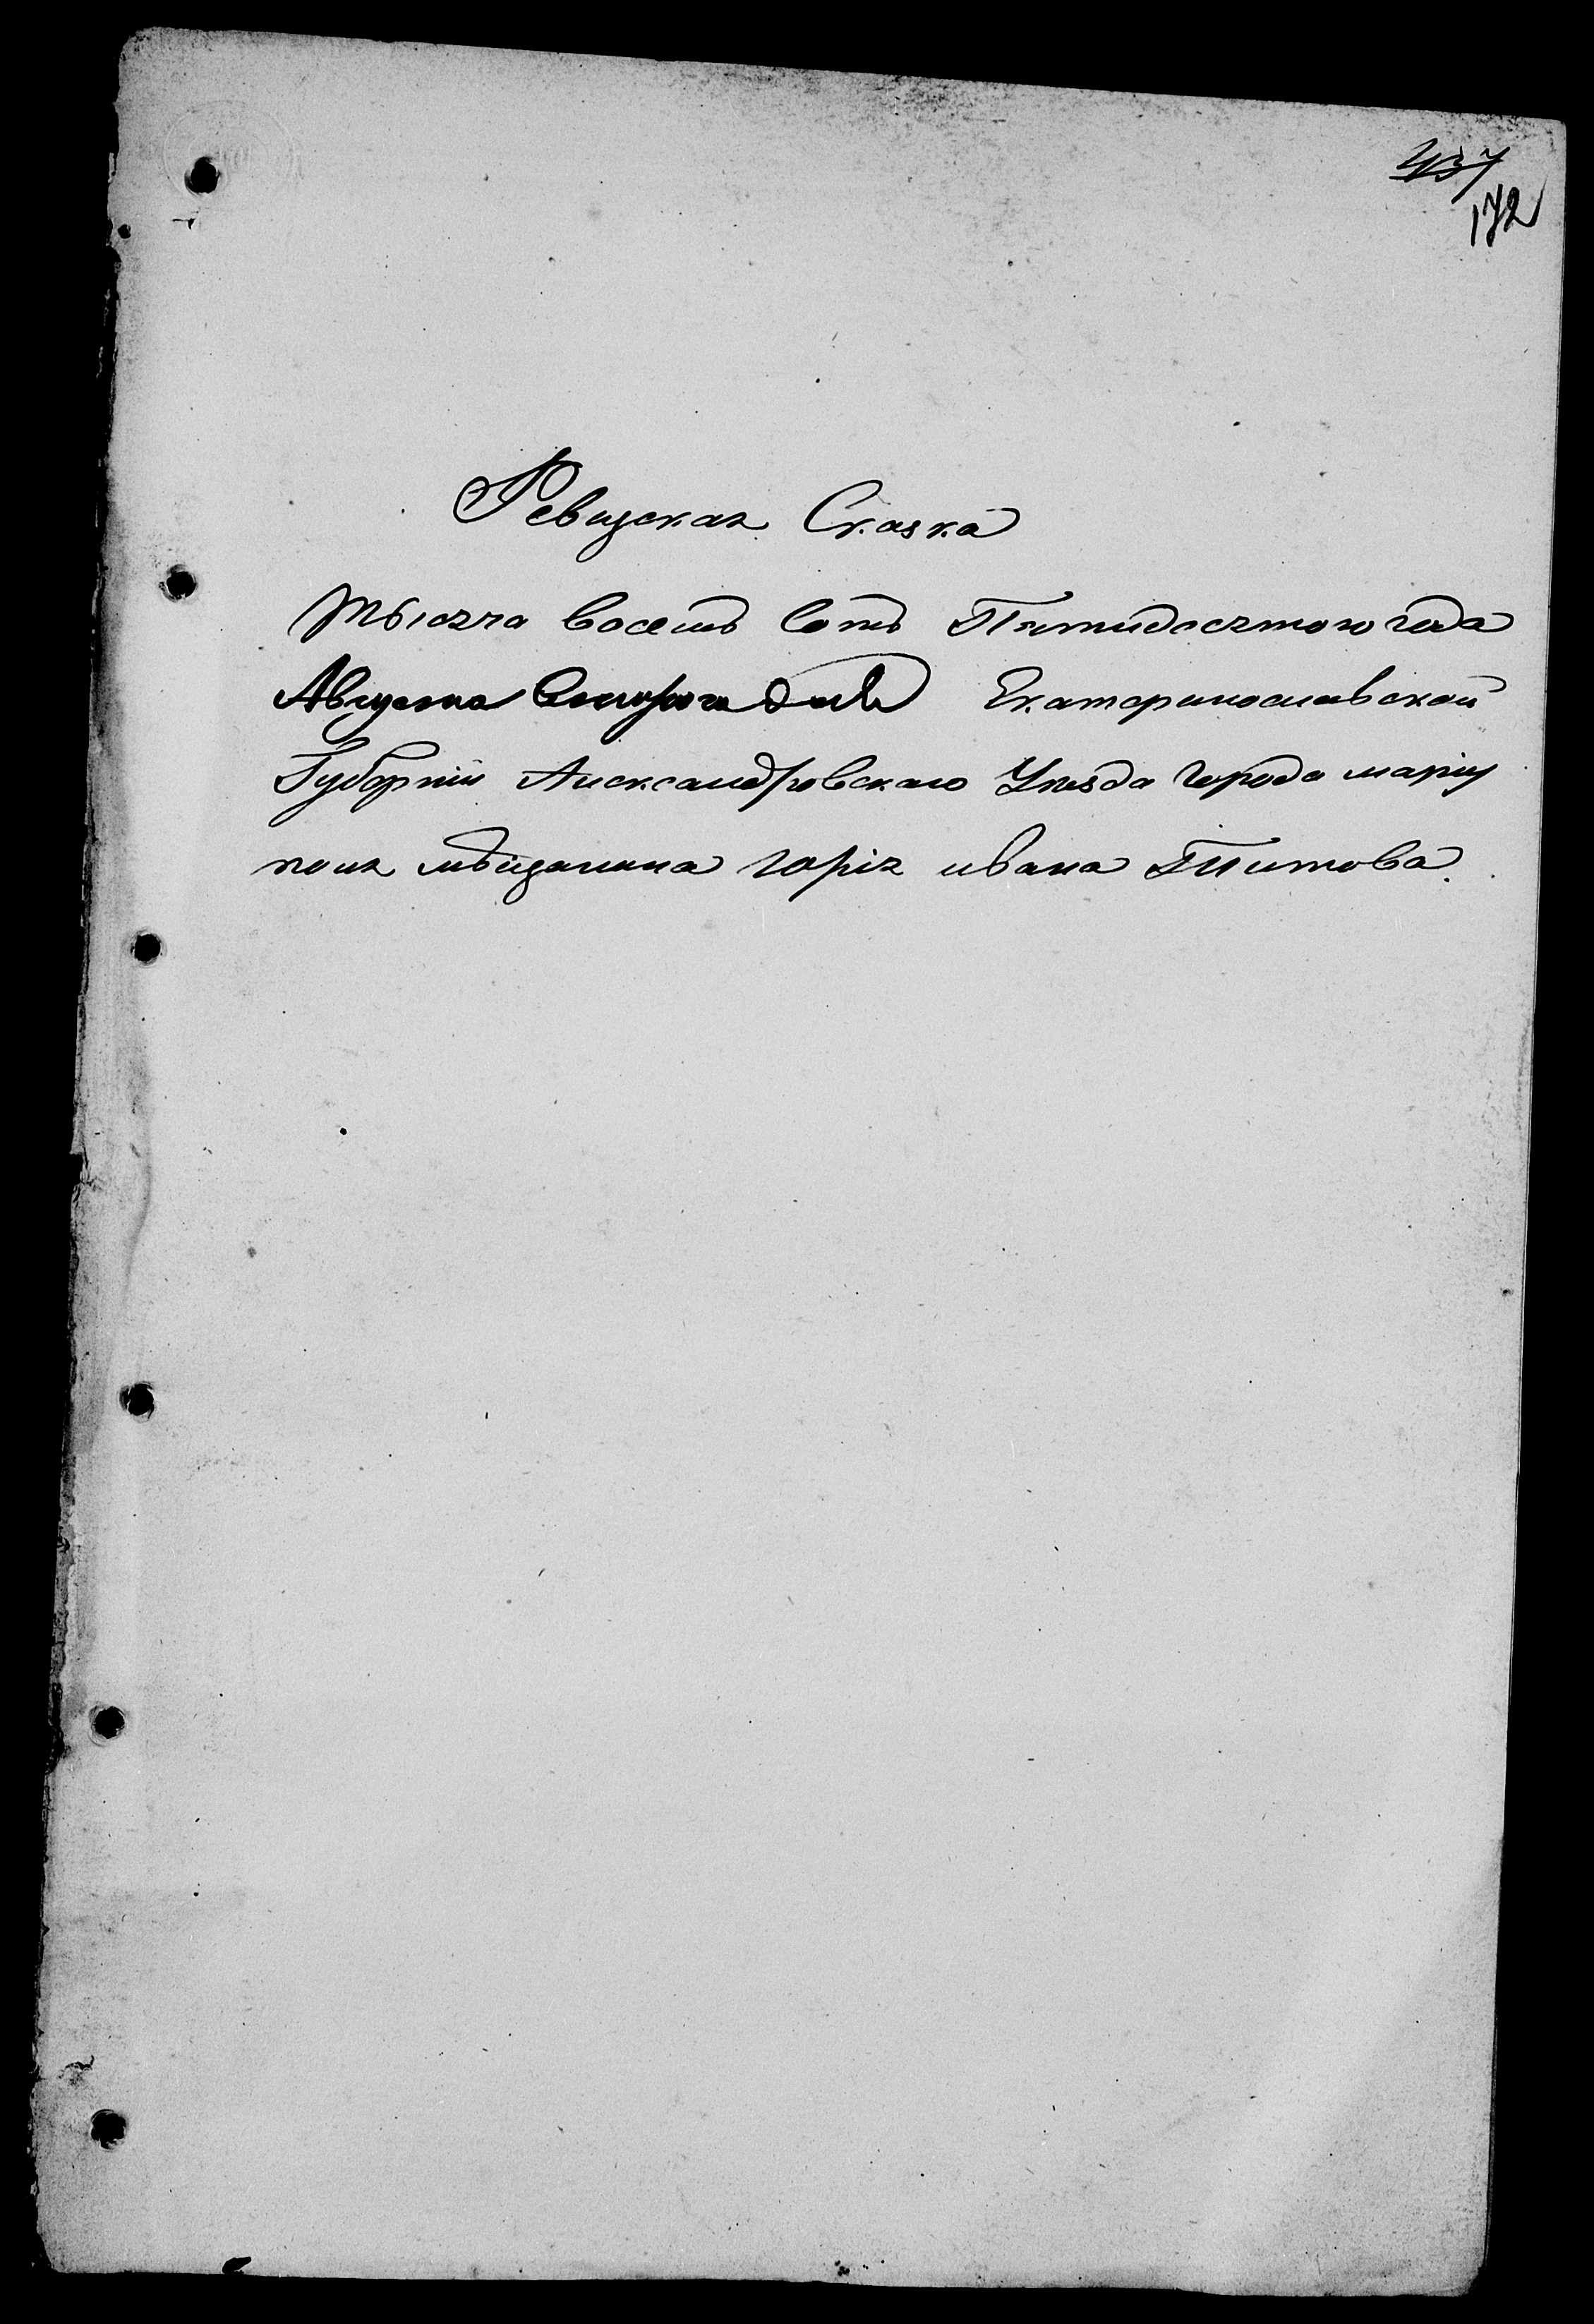 437
172
Ревизская Сказка
Тысяча восемь сотъ Пятидесятого года
Августа дня Екатеринославской
Губерніи Александровскаго Уезда города маріу
поля мещанина юрія ивана Титова.